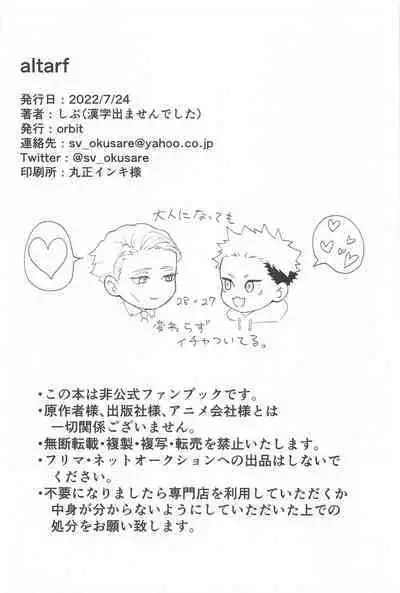 altarf
発行日：2022/7/24
著者：しぶ(漢字出ませんでした)
発行：orbit
連絡先：sv_okusare@yahoo.co.jp
Twitter：@sv_okusare
印刷所：丸正インキ様
大人になっても
28×27
変わらず
イチャついてる。
・この本は非公式ファンブックです。
・原作者様、出版社様、アニメ会社様とは
一切関係ございません。
・無断転載・複製・複写・転売を禁止いたします。
・フリマ・ネットオークションへの出品はしないで
ください。
・不要になりましたら専門店を利用していただくか
中身が分からないようにしていただいた上での
処分をお願い致します。